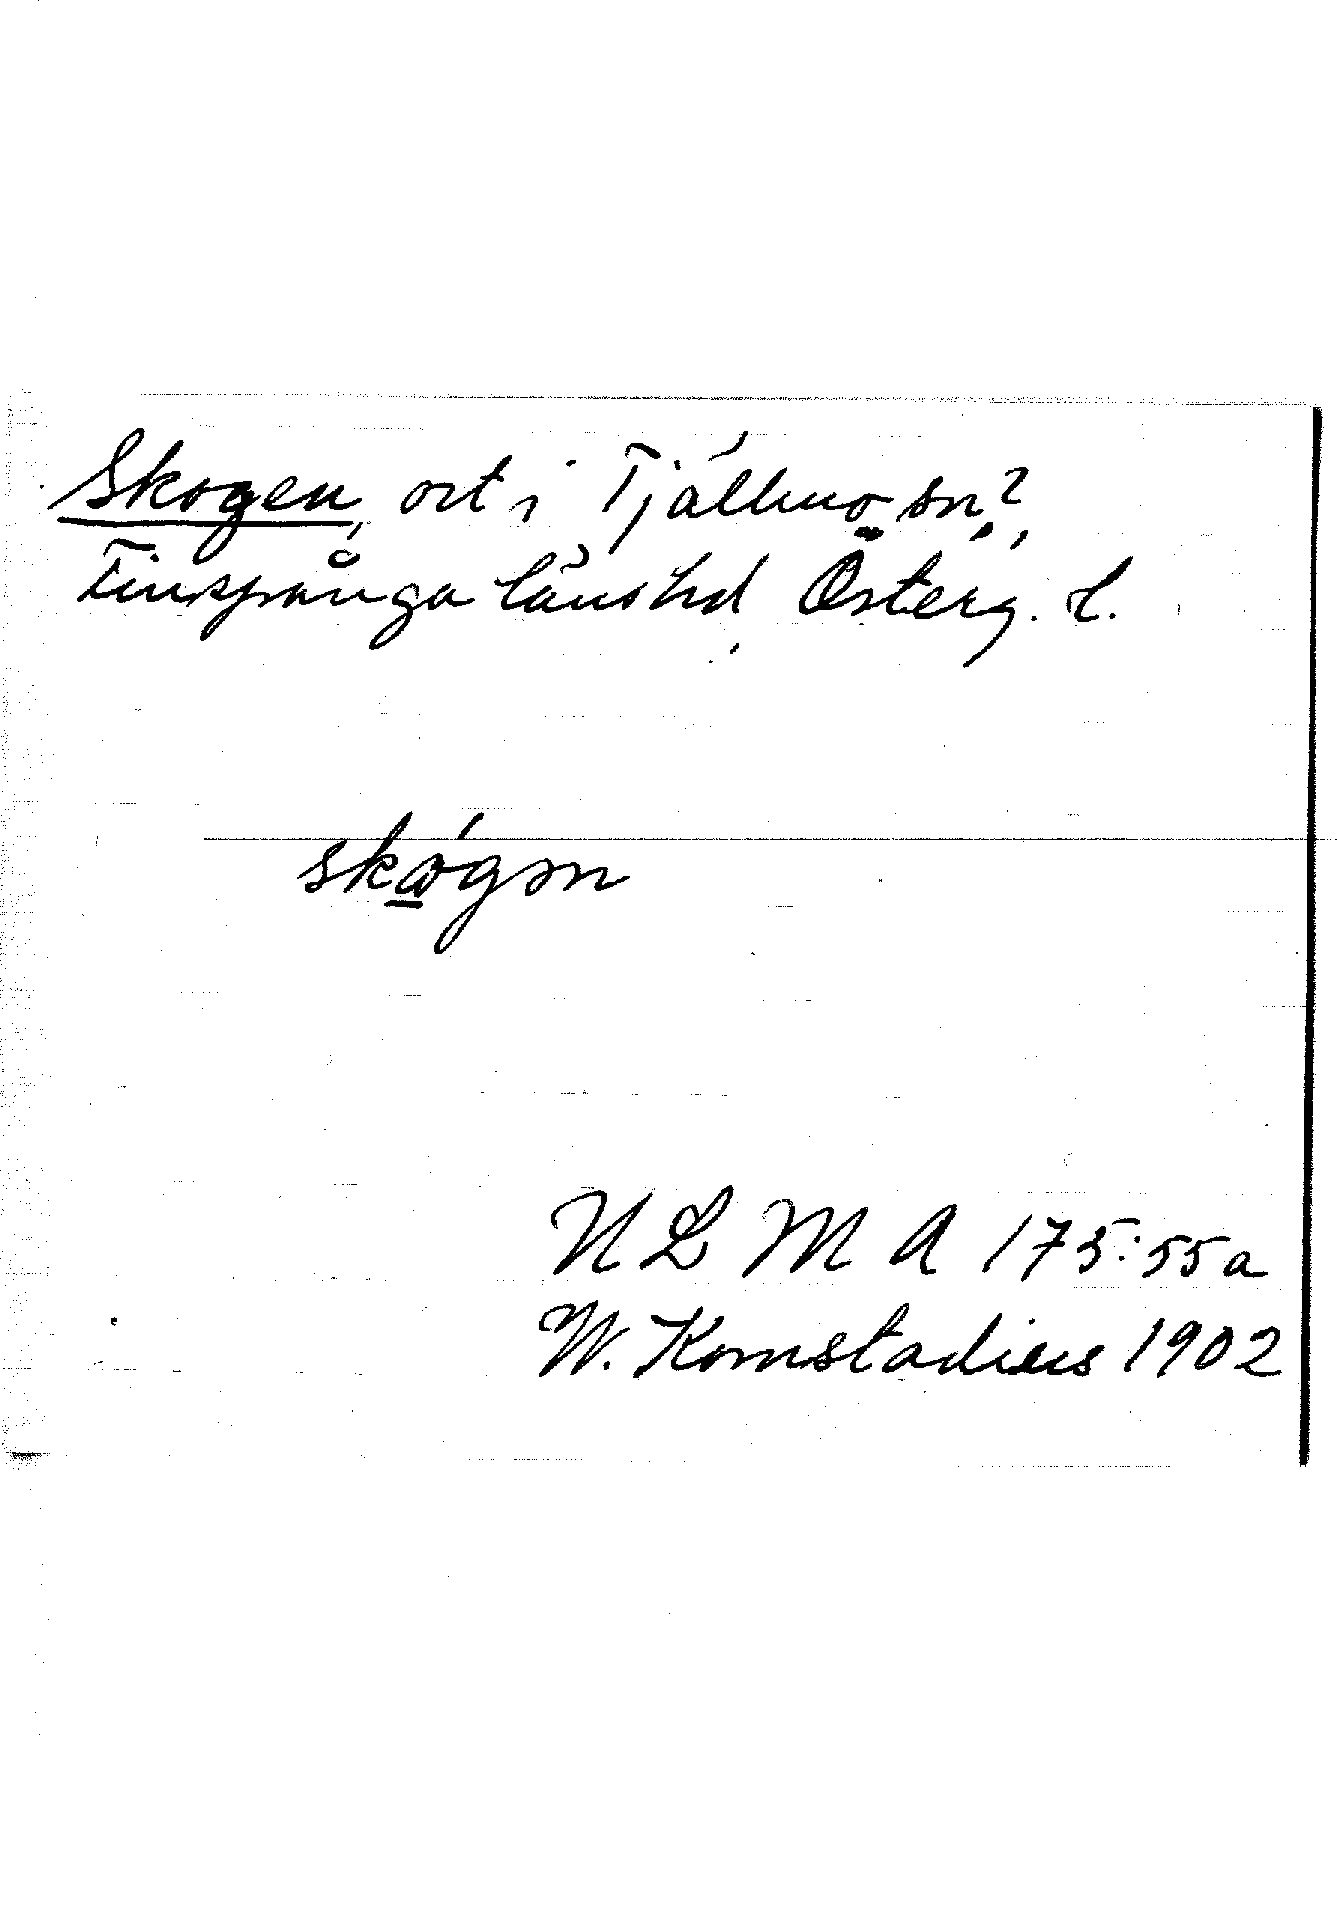 Skogen, ort i Tjällmo sn?,
Finspånga läns hd, Österg. l.
skógən
ULMA 175:55a
W. Kornstadius 1902